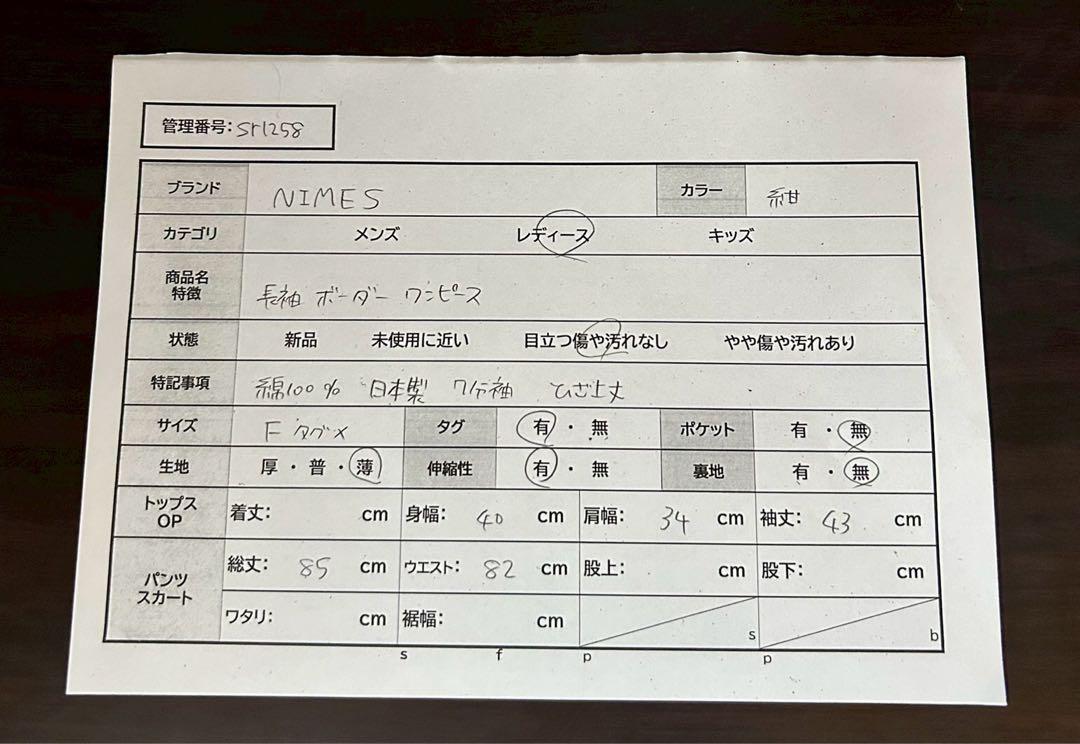 管理番号: sr1258
ブランド NIMES カラー 紺
カテゴリ メンズ レディース キッズ
商品名
特徴 長袖 ボーダー ワンピース
状態 新品 未使用に近い 目立つ傷や汚れなし やや傷や汚れあり
特記事項 綿100% 日本製 7分袖 ひざ上丈
サイズ F タグメ タグ 有 ・ 無 ポケット 有 ・ 無
生地 厚 ・ 普 ・ 薄 伸縮性 有 ・ 無 裏地 有 ・ 無
トップス
OP 着丈: cm 身幅: 40 cm 肩幅: 34 cm 袖丈: 43 cm
パンツ
スカート 総丈: 85 cm ウエスト: 82 cm 股上: cm 股下: cm
ワタリ: cm 裾幅: cm s b
s f p p